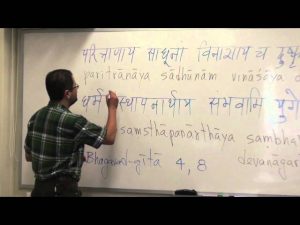 परित्राणाय साधूनां विनाशाय च
paritrāṇāya sādhūnāṃ vināśāya
धर्म स्थापनार्थाय संभवामि युगे
saṃsthāpanārthāya sambha
Bhagavad-gītā 4,8 devanāgarī